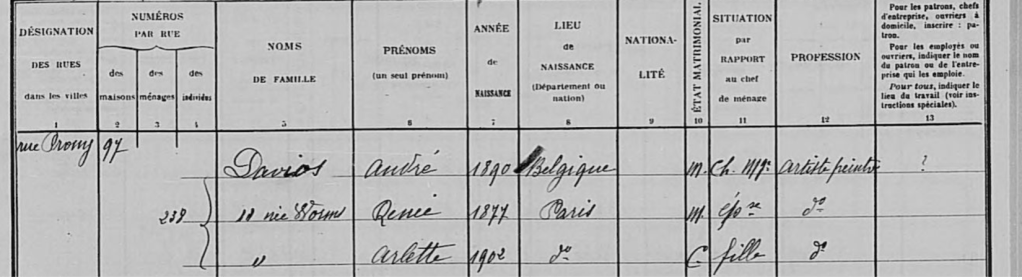 DÉSIGNATION DES RUES dans les villes
NUMÉROS PAR RUE
des maisons
des ménages
des individus
NOMS DE FAMILLE
PRÉNOMS (un seul prénom)
ANNÉE de NAISSANCE
LIEU de NAISSANCE (Département ou nation)
NATIONALITÉ
ÉTAT MATRIMONIAL
SITUATION par RAPPORT au chef de ménage
PROFESSION
Pour les patrons, chefs
d'entreprise, ouvriers à
domicile, inscrire : pa-
tron.
Pour les employés ou
ouvriers, indiquer le nom
du patron ou de l'entre-
prise qui les emploie.
Pour tous, indiquer le
lieu du travail (voir ins-
tructions spéciales).
1 2 3 4 5 6 7 8 9 10 11 12 13
rue Prony 97
Davids André 1890 Belgique M. Ch. Mge Artiste peintre ?
238 id née Worms Renée 1877 Paris M. épse do
" Arlette 1902 do C fille do